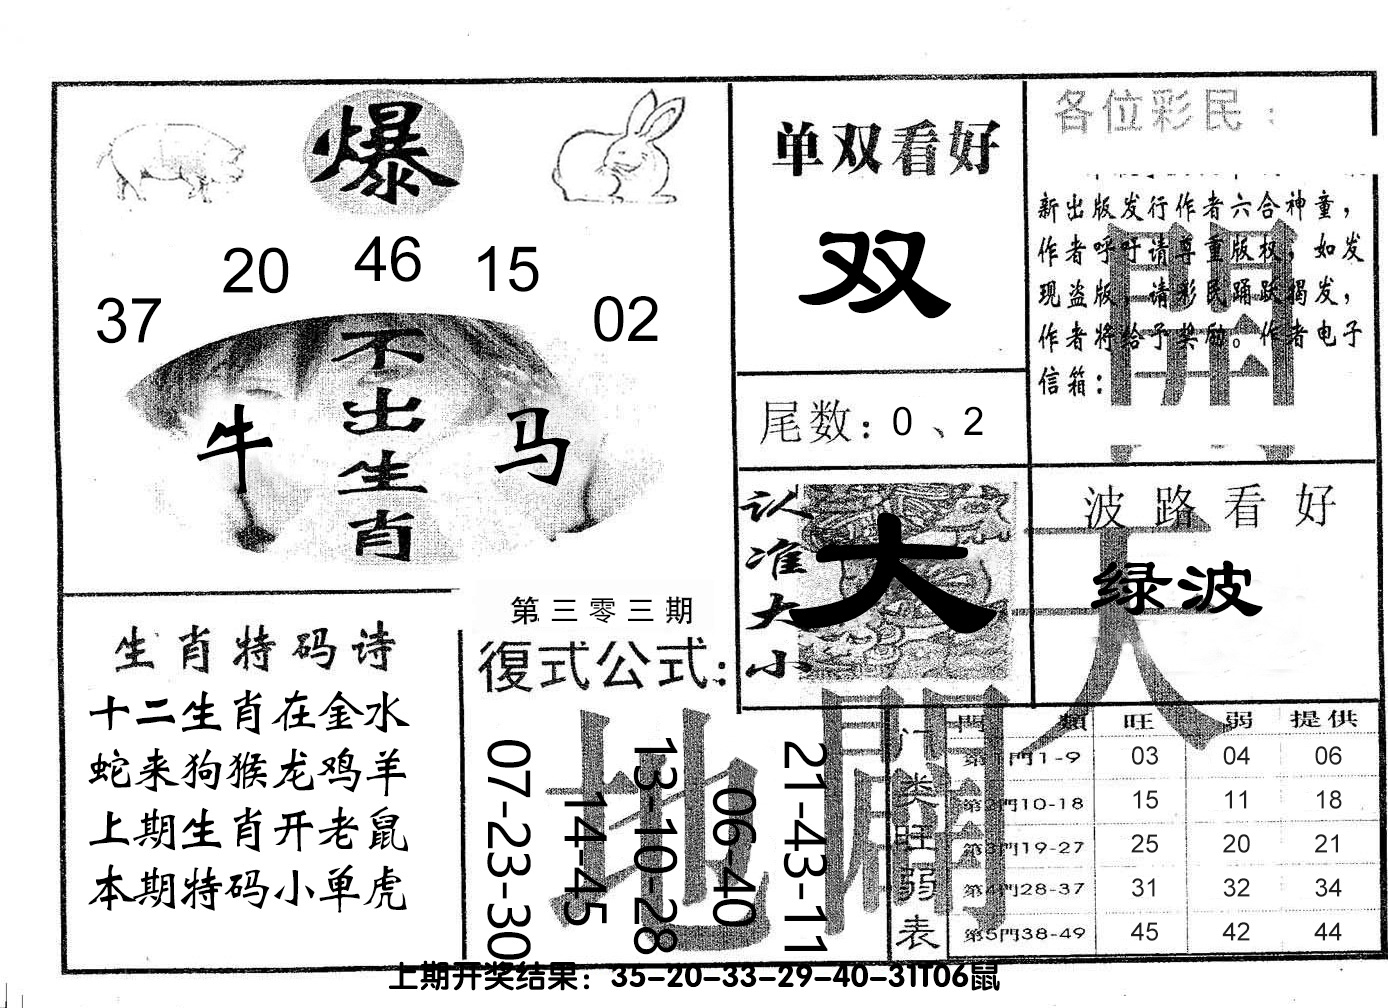 爆
37 20 46 15 02
不出生肖
牛 马
单双看好
双
尾数：0、2
各位彩民：
新出版发行作者六合神童，
作者呼吁请尊重版权，如发
现盗版，请彩民踊跃揭发，
作者将给予奖励。作者电子
信箱：
認准大小
大
波路看好
绿波
生肖特码诗
十二生肖在金水
蛇来狗猴龙鸡羊
上期生肖开老鼠
本期特码小单虎
第三零三期
復式公式：
07-23-30
14-45
13-10-28
06-40
21-43-11
天
開
地
闢
门类旺弱表
門類 旺 弱 提供
第1門1-9 03 04 06
第2門10-18 15 11 18
第3門19-27 25 20 21
第4門28-37 31 32 34
第5門38-49 45 42 44
上期开奖结果：35-20-33-29-40-31T06鼠